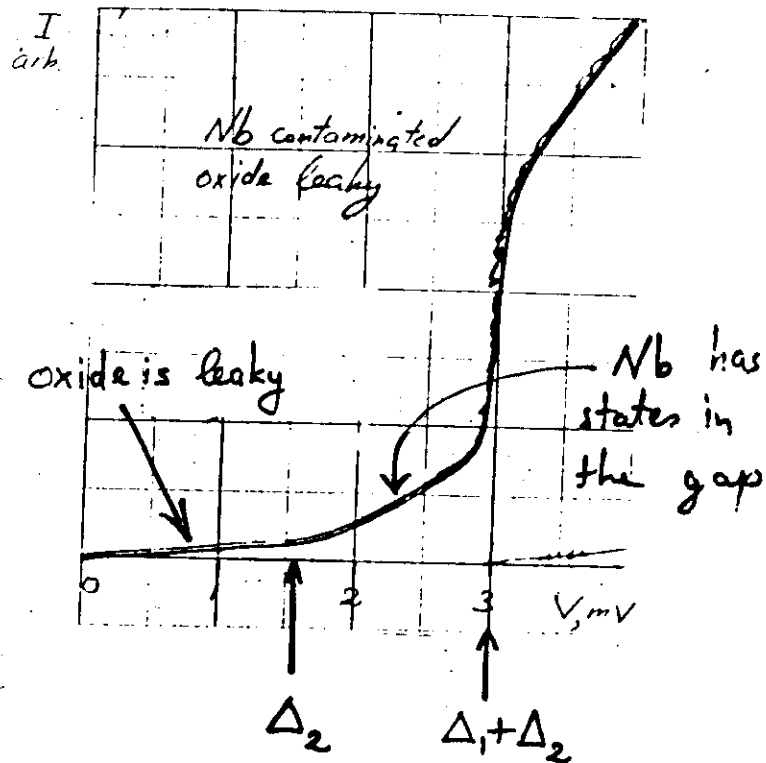 I
arb.
Nb contaminated
oxide leaky
oxide is leaky
Nb has
states in
the gap
0 1 2 3 V, mV
Δ₂ Δ₁+Δ₂